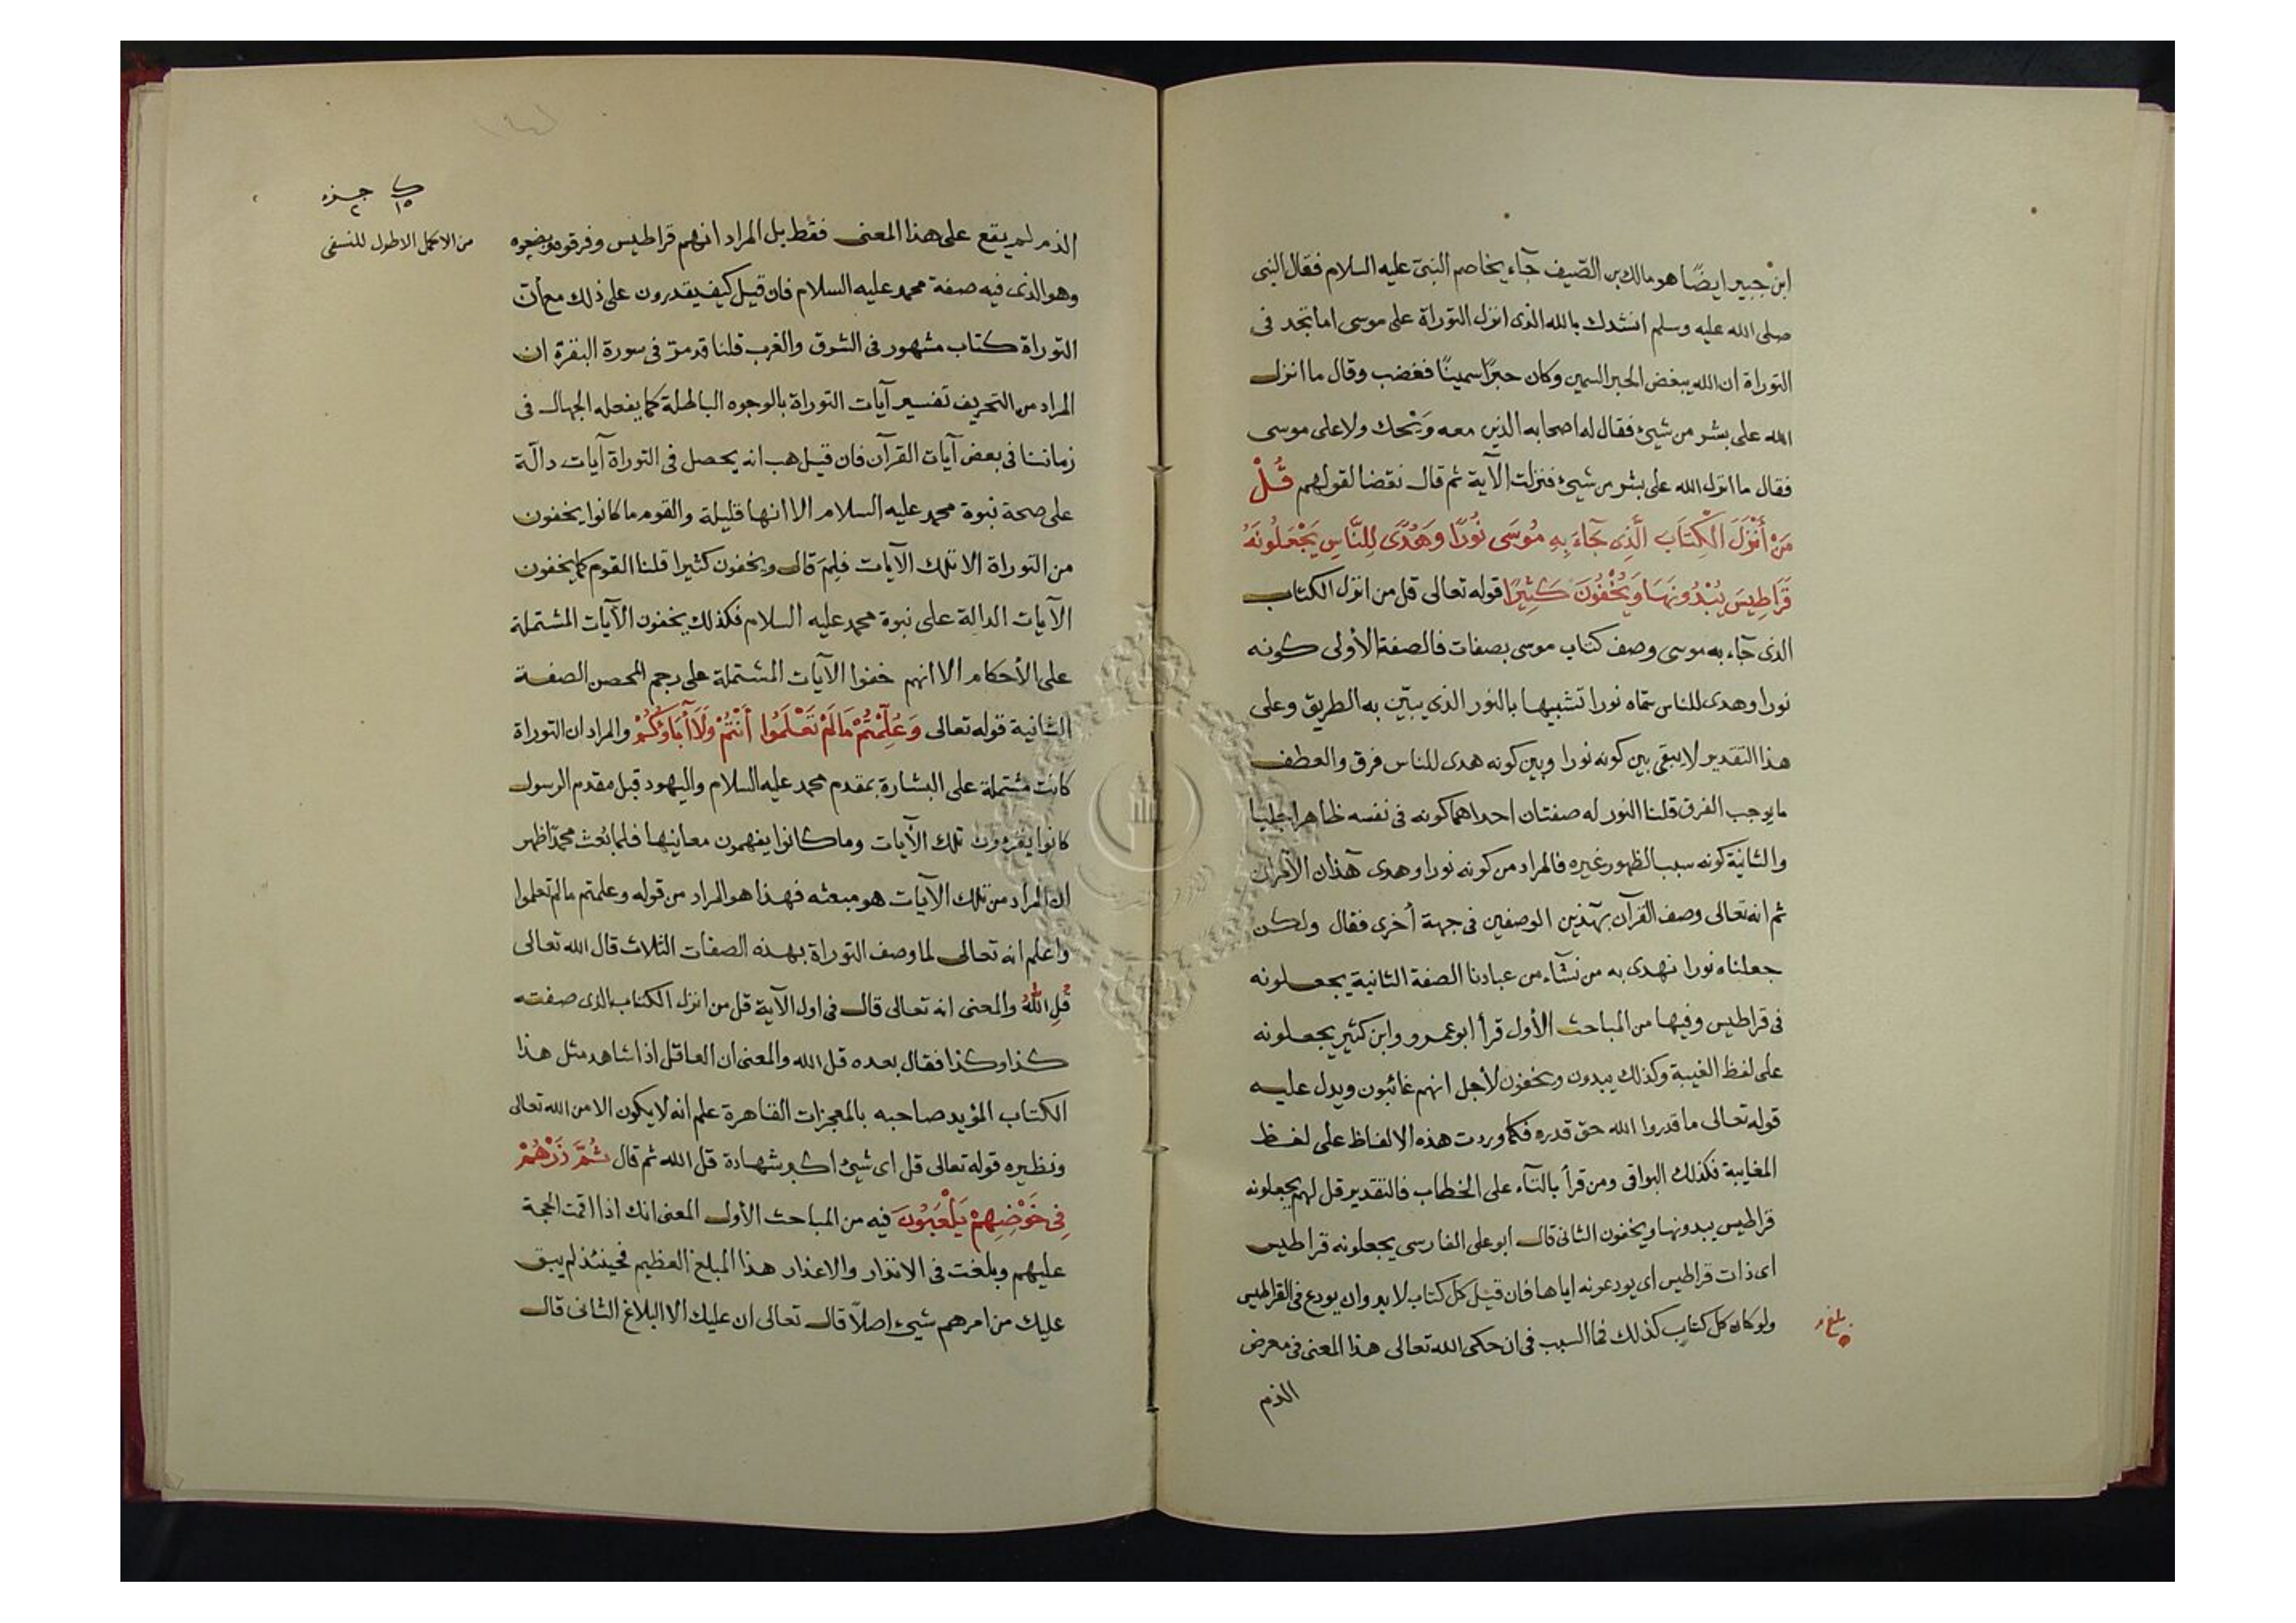 ابن جبير ايضًا هو مالك بن الصّيف جآء يخاصم النبىّ عليه السلام فقال النبى
صلى الله عليه وسلم انشدك بالله الذى انزل التوراة على موسى اما تجد فى
التوراة ان الله يبغض الحبر السمين وكان حبرًا سمينًا فغضب وقال ما انزل
الله على بشر من شيئ فقال له اصحابه الذين معه وَيْحك ولا على موسى
فقال ما انزل الله على بشر من شيئ فنزلت الآية ثم قال نقضا لقولهم قُلْ
مَنْ أَنْزَلَ الْكِتَابَ الَّذِى جَآءَ بِهِ مُوسَى نُورًا وَهُدًى لِلنَّاسِ يَجْعَلُونَهُ
قَرَاطِيسَ يُبْدُونَهَا وَيُخْفُونَ كَثِيرًا قوله تعالى قل من انزل الكتاب
الذى جآء به موسى وصف كتاب موسى بصفات فالصفة الأولى كونه
نورا وهدى للناس سمّاه نورا تشبيها بالنور الذى يبيّن به الطريق وعلى
هذا التقدير لا يبقى بين كونه نورا وبين كونه هدى للناس فرق والعطف
ما يوجب الفرق قلنا النور له صفتان احداهما كونه فى نفسه ظاهرا جليا
والثانية كونه سبب الظهور غيره فالمراد من كونه نورا وهدى هذان الأمران
ثم انه تعالى وصف القرآن بهذين الوصفين فى جهة أخرى فقال ولكن
جعلناه نورا نهدى به من نشآء من عبادنا الصفة الثانية يجعلونه
فى قراطيس وفيها من المباحث الأول قرأ ابو عمرو وابن كثير يجعلونه
على لفظ الغيبة وكذلك يبدون ويخفون لأجل انهم غائبون ويدل عليه
قوله تعالى ما قدروا الله حق قدره فكما وردت هذه الالفاظ على لفظ
المغايبة فكذلك البواقى ومن قرأ بالتآء على الخطاب فالتقدير قل لهم يجعلونه
قراطيس يبدونها ويخفون الثانى قال ابو على الفارسى يجعلونه قراطيس
اى ذات قراطيس اى يودعونه اياها فان قيل كل كتاب لا بد وان يودع فى القراطيس
ولو كان كل كتاب كذلك فما السبب فى ان حكى الله تعالى هذا المعنى فى معرض
بلغ
الذم
كـ ١٥ جزء ٢
من الاكمل الاطول للنسفى
الذم لم يقع على هذا المعنى فقط بل المراد انهم قراطيس وفرقوه
وهو الذى فيه صفة محمد عليه السلام فان قيل كيف يقدرون على ذلك مع أن
التوراة كتاب مشهور فى الشرق والغرب قلنا قد مرّ فى سورة البقرة ان
المراد من التحريف تفسير آيات التوراة بالوجوه الباطلة كما يفعله الجهال فى
زماننا فى بعض آيات القرآن فان قيل هب انه يحصل فى التوراة آيات دالّة
على صحة نبوة محمد عليه السلام الا انها قليلة والقوم ما كانوا يخفون
من التوراة الا تلك الآيات فلِمَ قال ويخفون كثيرا قلنا القوم كما يخفون
الآيات الدالة على نبوة محمد عليه السلام فكذلك يخفون الآيات المشتملة
على الأحكام الا انهم خفوا الآيات المشتملة على رجم المحصن الصفة
الثانية قوله تعالى وَعُلِّمْتُمْ مَا لَمْ تَعْلَمُوا أَنْتُمْ وَلَا أَبَاؤُكُمْ والمراد ان التوراة
كانت مشتملة على البشارة بمقدم محمد عليه السلام واليهود قبل مقدم الرسول
كانوا يقرءون تلك الآيات وما كانوا يفهمون معانيها فلما بُعث محمدّ اظهر
ان المراد من تلك الآيات هو مبعثه فهذا هو المراد من قوله وعلمتم ما لم تعلموا
واعلم انه تعالى لما وصف التوراة بهذه الصفات الثلاث قال الله تعالى
قُلِ اللهُ والمعنى انه تعالى قال فى اول الآية قل من انزل الكتاب الذى صفته
كذا وكذا فقال بعده قل الله والمعنى ان العاقل اذا شاهد مثل هذا
الكتاب المؤيد صاحبه بالمعجزات القاهرة علم انه لا يكون الا من الله تعالى
ونظيره قوله تعالى قل اى شيئ اكبر شهادة قل الله ثم قال ثُمَّ ذَرْهُمْ
فِى خَوْضِهِمْ يَلْعَبُونَ فيه من المباحث الأول المعنى انك اذا اقمت الحجة
عليهم وبلغت فى الانذار والاعذار هذا المبلغ العظيم فحينئذ لم يبق
عليك من امرهم شيئ اصلًا قال تعالى ان عليك الا البلاغ الثانى قال